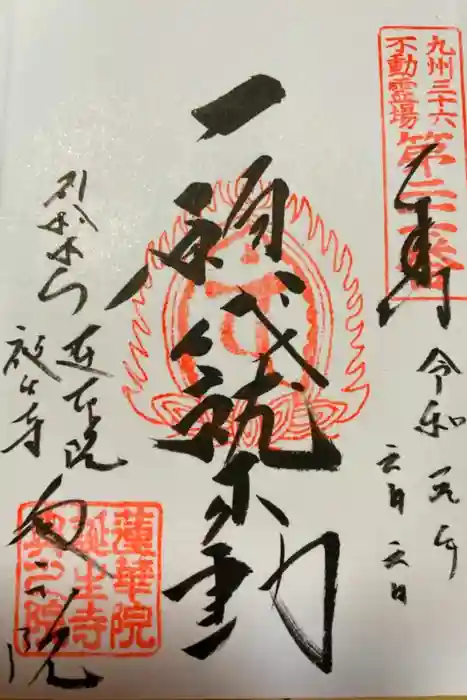 九州三十六
不動霊場
奉拝
令和元年
一願成就不動
別格本山
蓮華院
誕生寺
奥之院
蓮華院
誕生寺
奥之院